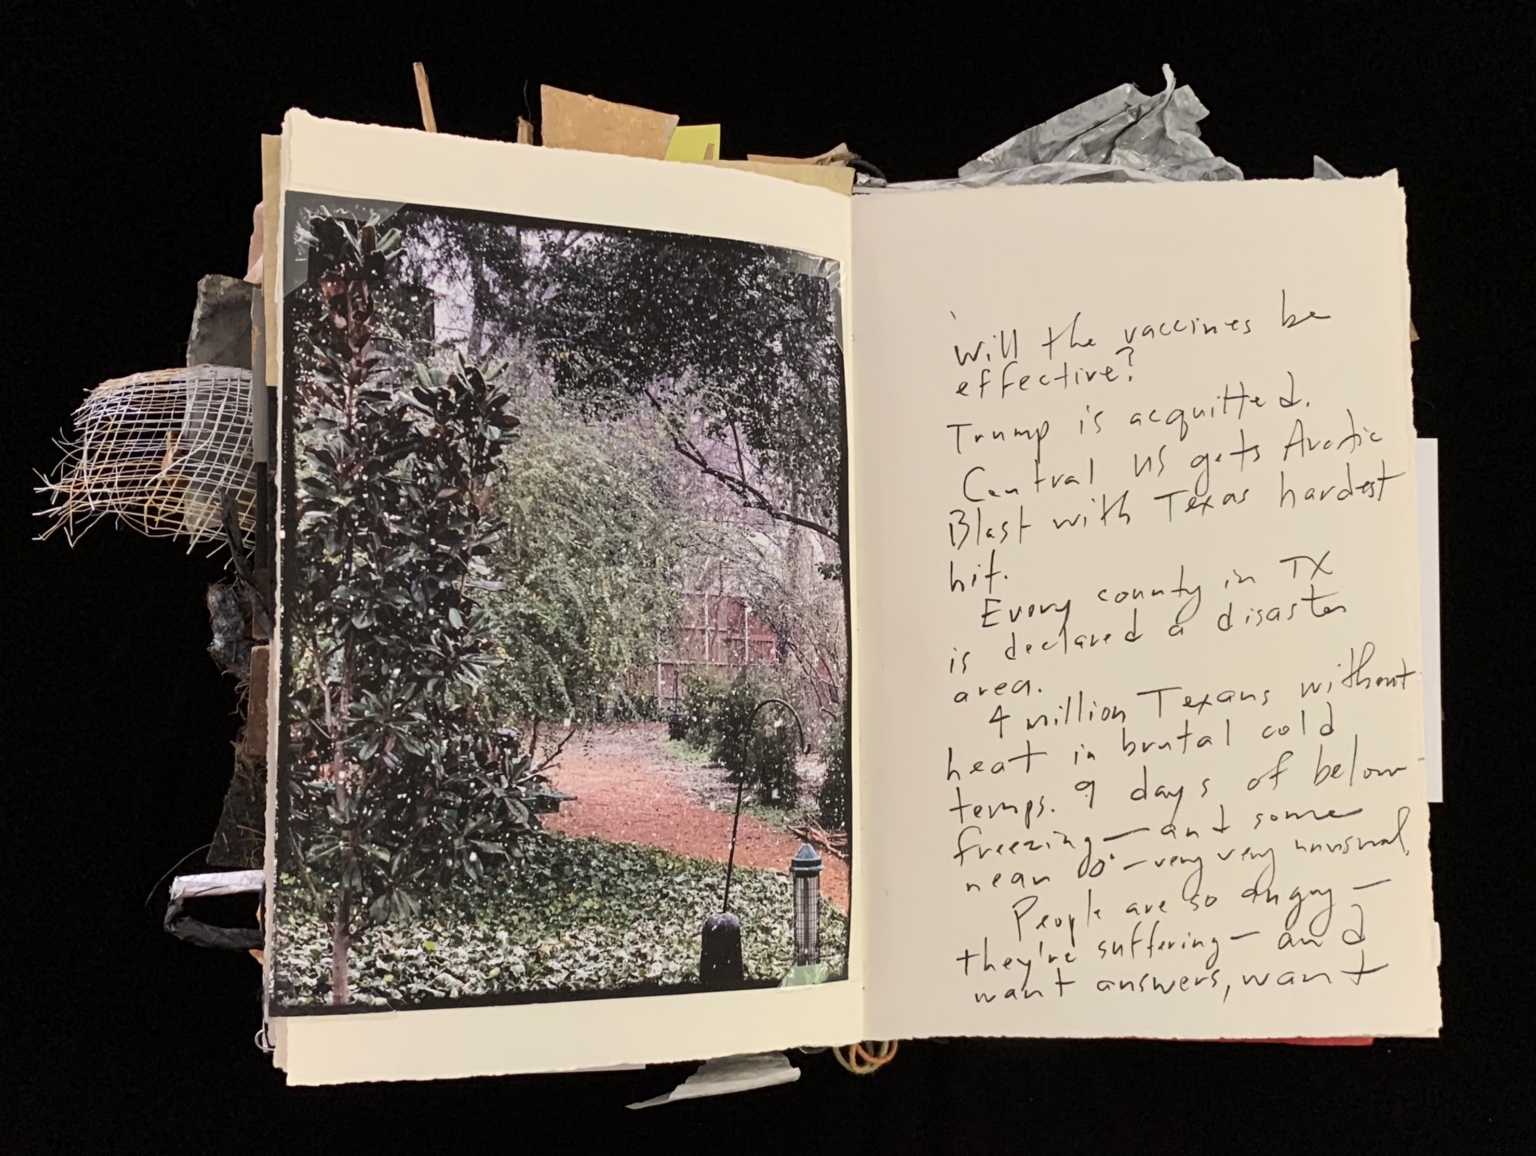 Will the vaccines be
effective?
Trump is acquitted.
Central US gets Arctic
Blast with Texas hardest
hit.
Every county in TX
is declared a disaster
area.
4 million Texans without
heat in brutal cold
temps. 9 days of below
freezing — and some
near 00° — very very unusual.
People are so angry —
they're suffering — and
want answers, want